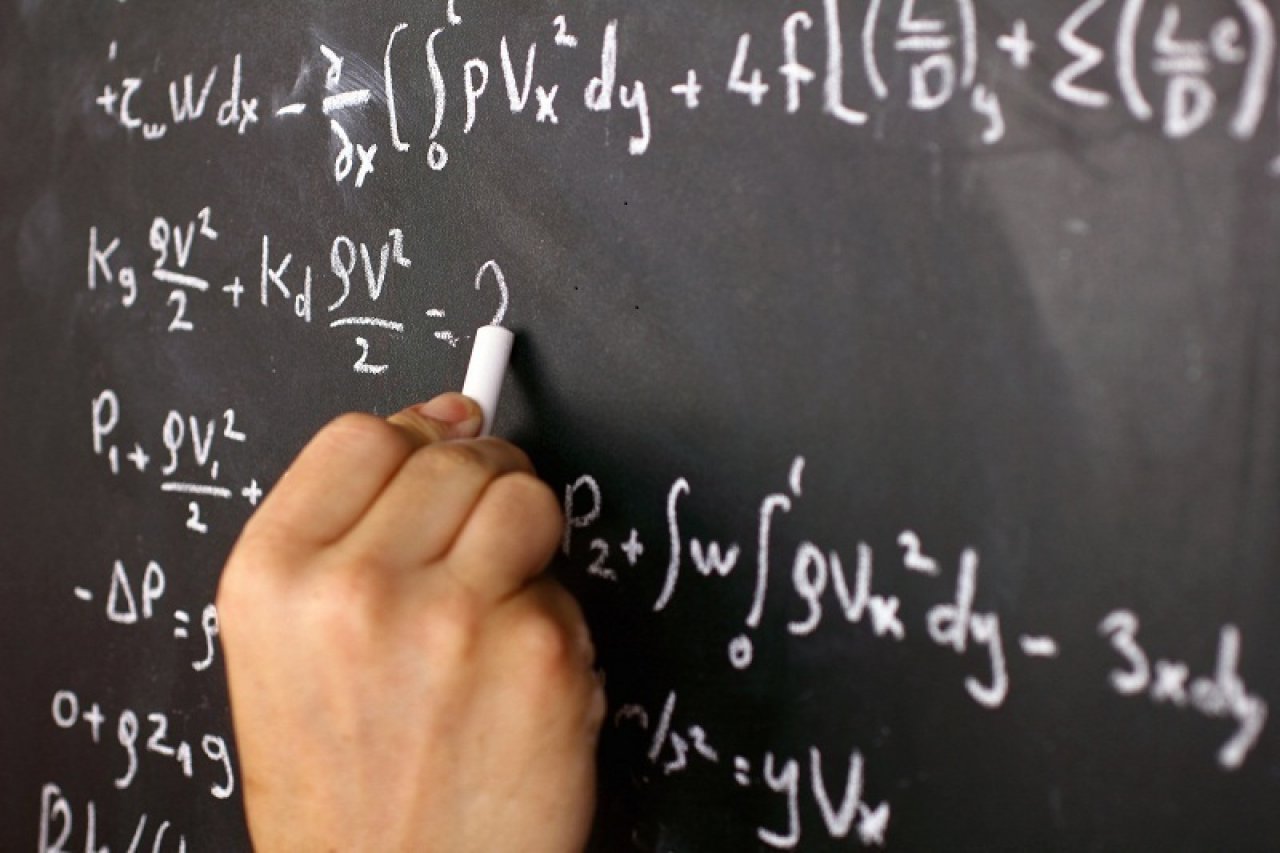 +τ_w W dx - ∂/∂x (∫₀ᶦ ρV_x² dy + 4f[(L/D)_y + Σ(L/D e)
K_g ρV²/2 + K_d ρV²/2 = ?
P₁ + ρV₁²/2 + P₂ + ∫w∫₀ᶦ ρV_x² dy - 3x dy
-ΔP = ρ
0 + ρz₁g m/s² = yV_x